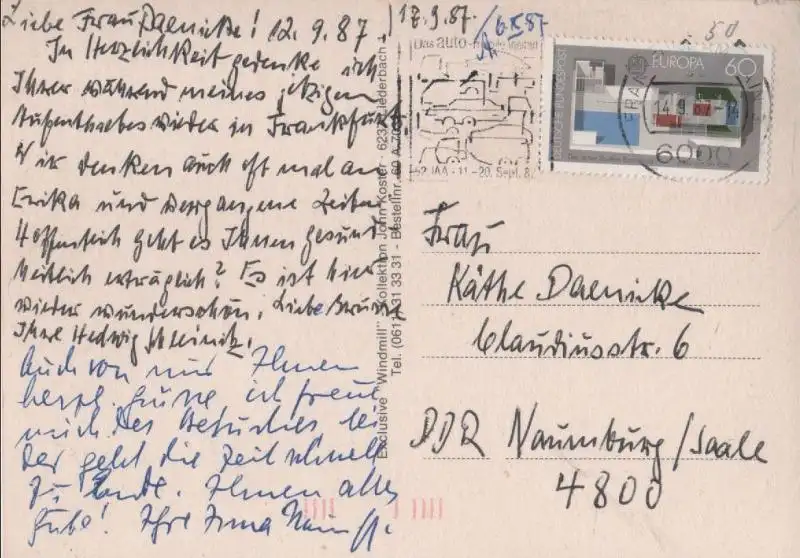 Liebe Frau Daenicke! 12.9.87.
In Herzlichkeit gedenke ich
Ihrer während meines jetzigen
Aufenthaltes wieder in Frankfurt
Wir denken auch oft mal an
Erika und vergangene Zeiten
Hoffentlich geht es Ihnen gesund
heitlich erträglich? Es ist hier
wieder wunderschön. Liebe Grüße
Ihre Hedwig
Auch von mir Ihnen
herzl. Grüße ich freue
mich des Besuches bei
der geht die Zeit schnell
zu Ende. Ihnen alles
Gute! Ihre Irma
17.9.87.
6.X.87
50
Das auto
52. IAA · 11.-20. Sept. 87
DEUTSCHE BUNDESPOST
EUROPA 60
FRAN
14.9.
6000
Exclusive "Windmill" Kollektion John Koster · 623 Liederbach
Tel. 31 33 31 - Bestellnr. 60 A
Frau
Käthe Daenicke
Claudiusstr. 6
DDR Naumburg/Saale
4800